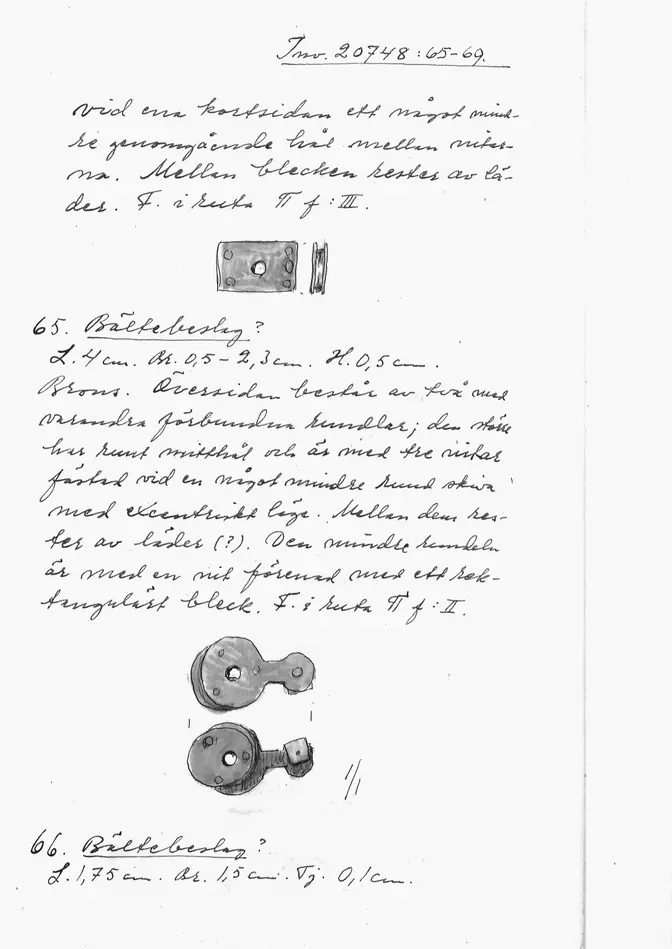 Inv. 20748:65-69.
vid ena kortsidan ett något mind-
re genomgående hål mellan nitar-
na. Mellan blecken rester av lä-
der. F. i ruta Π f:III.
65. Bältebeslag?
L. 4 cm. Br. 0,5-2,3 cm. H. 0,5 cm.
Brons. Översidan består av två med
varandra förbundna rundlar; den större
har runt mitthål och är med tre nitar
fästad vid en något mindre rund skiva
med excentriskt läge. Mellan dem res-
ter av läder (?). Den mindre rundeln
är med en nit förenad med ett rek-
tangulärt bleck. F. i ruta Π f:II.
1/1
66. Bältebeslag?
L. 1,75 cm. Br. 1,5 cm. Tj. 0,1 cm.